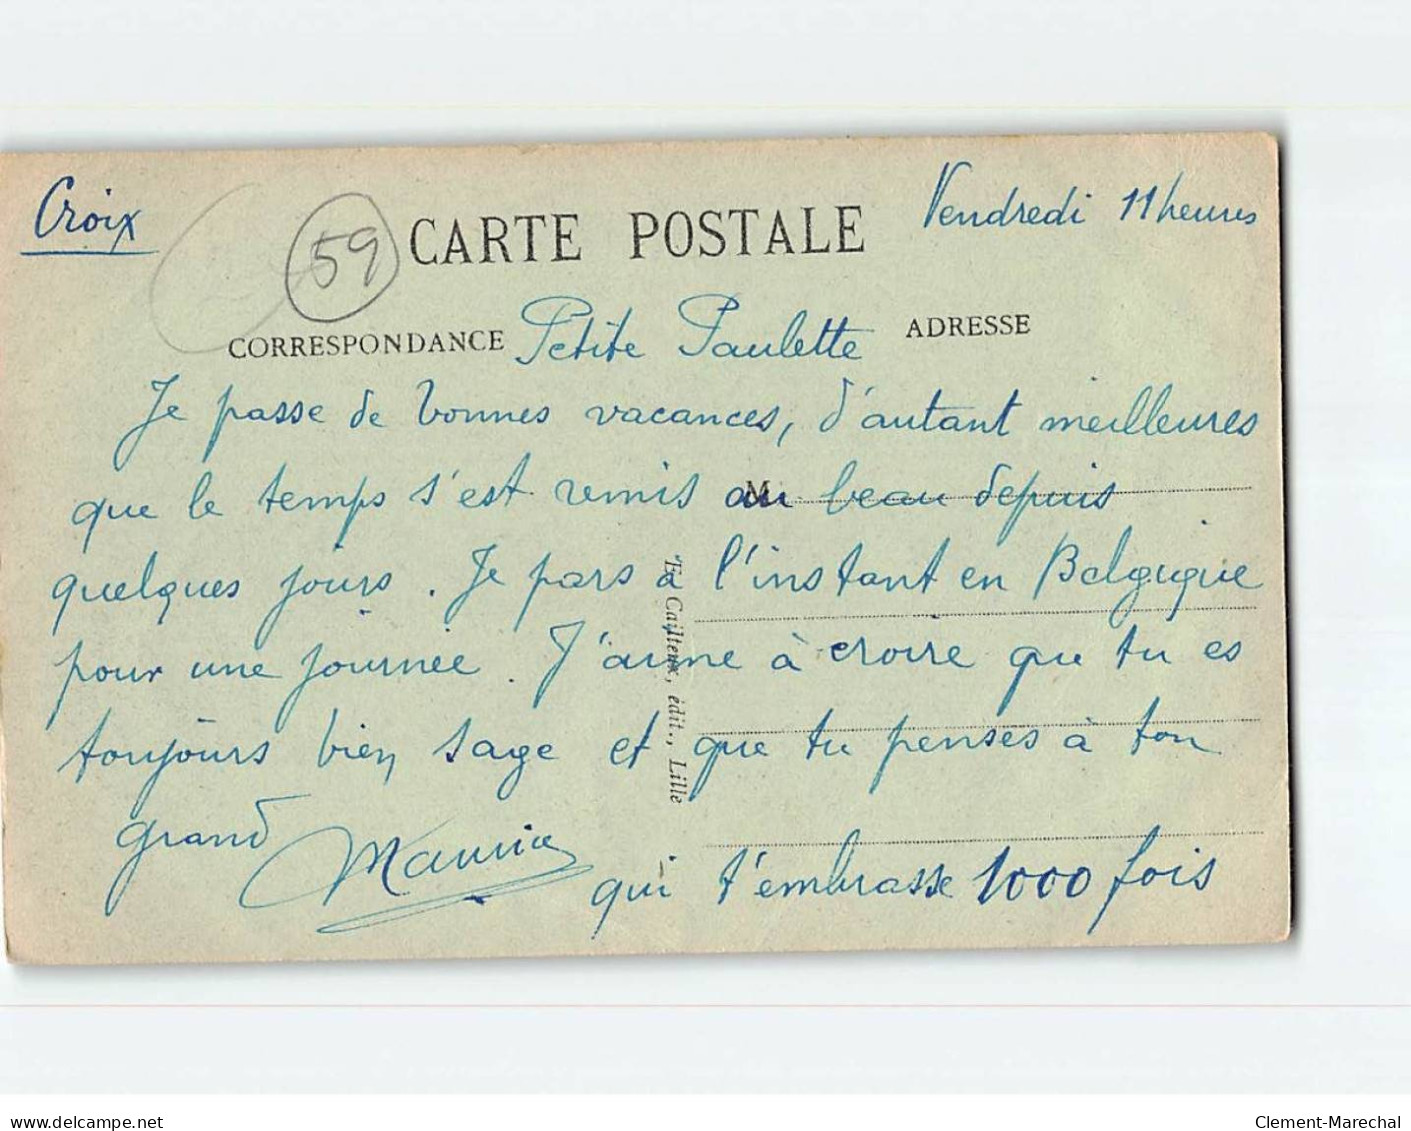 Croix
Vendredi 11 heures
59
CARTE POSTALE
CORRESPONDANCE
ADRESSE
Petite Paulette
Je passe de bonnes vacances, d'autant meilleures
que le temps s'est remis au beau depuis
M
quelques jours. Je pars à l'instant en Belgique
pour une journée. J'aime à croire que tu es
toujours bien sage et que tu penses à ton
grand Maurice qui t'embrasse 1000 fois
E. Cailteux, édit., Lille
delcampe.net
Clement-Marechal